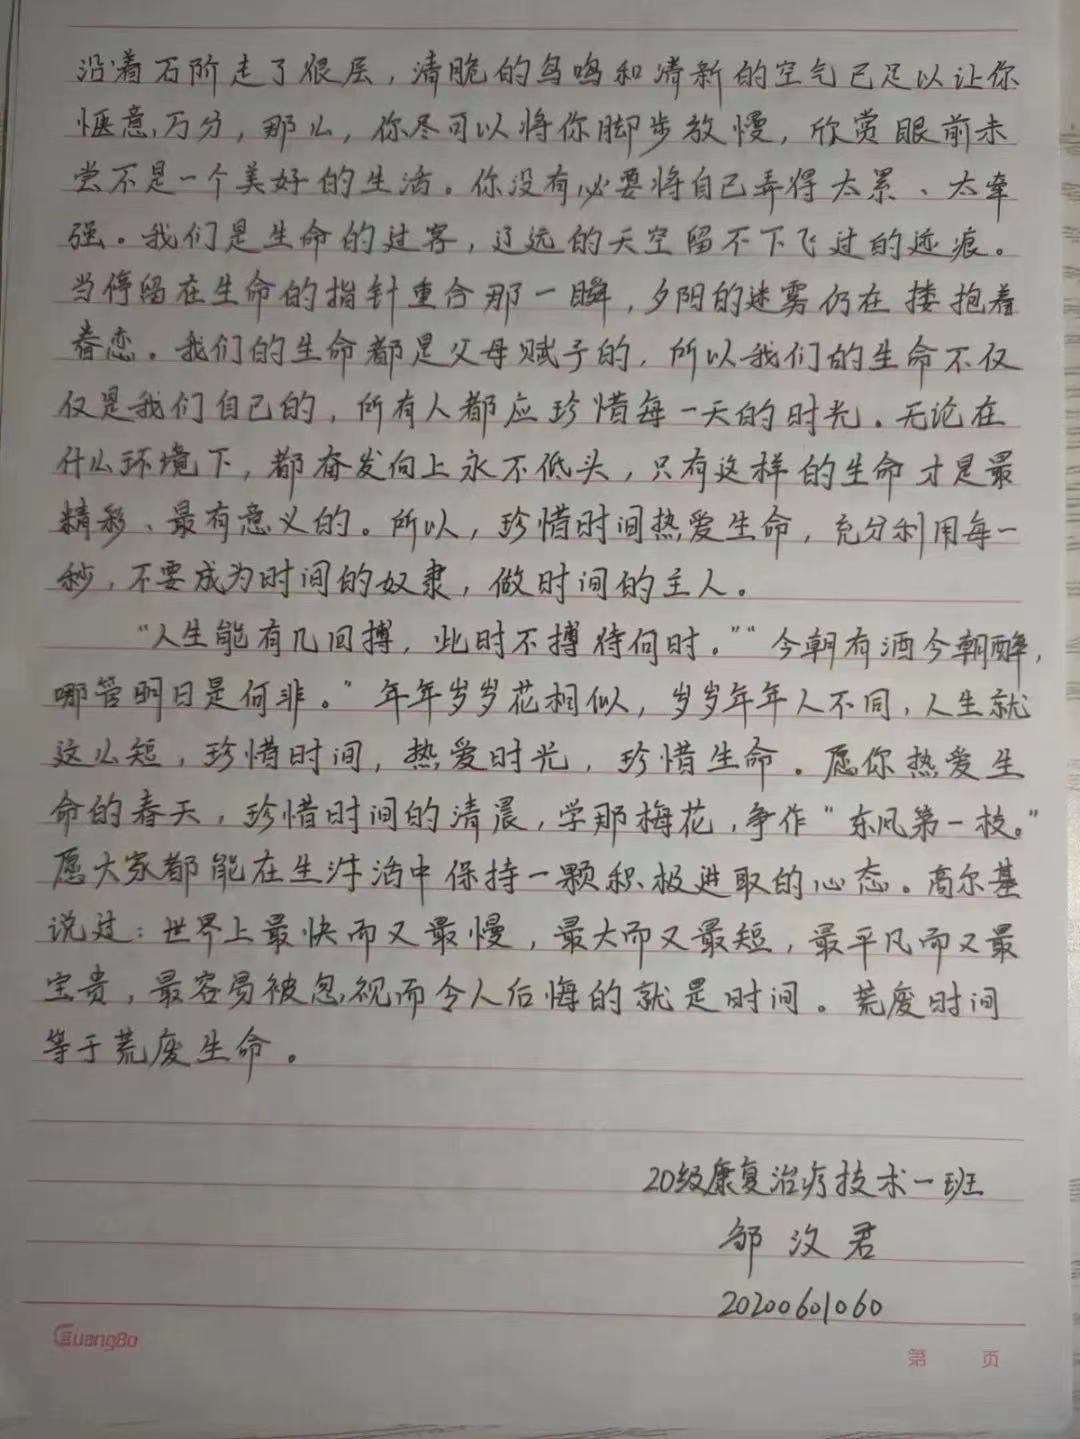 沿着石阶走了很层，清脆的鸟鸣和清新的空气已足以让你
惬意万分，那么，你尽可以将你脚步放慢，欣赏眼前未
尝不是一个美好的生活。你没有必要将自己弄得太累、太牵
强。我们是生命的过客，辽远的天空留不下飞过的迹痕。
当停留在生命的指针重合那一瞬，夕阳的迷雾仍在搂抱着
眷恋。我们的生命都是父母赋予的，所以我们的生命不仅
仅是我们自己的，所有人都应珍惜每一天的时光。无论在
什么环境下，都奋发向上永不低头，只有这样的生命才是最
精彩、最有意义的。所以，珍惜时间热爱生命，充分利用每一
秒，不要成为时间的奴隶，做时间的主人。
“人生能有几回搏，此时不搏待何时。”“今朝有酒今朝醉，
哪管明日是何非。”年年岁岁花相似，岁岁年年人不同，人生就
这么短，珍惜时间，热爱时光，珍惜生命。愿你热爱生
命的春天，珍惜时间的清晨，学那梅花，争作“东风第一枝。”
愿大家都能在生活中保持一颗积极进取的心态。高尔基
说过：世界上最快而又最慢，最大而又最短，最平凡而又最
宝贵，最容易被忽视而令人后悔的就是时间。荒废时间
等于荒废生命。
20级康复治疗技术一班
邹汶君
20200601060
GuangBo
第 页